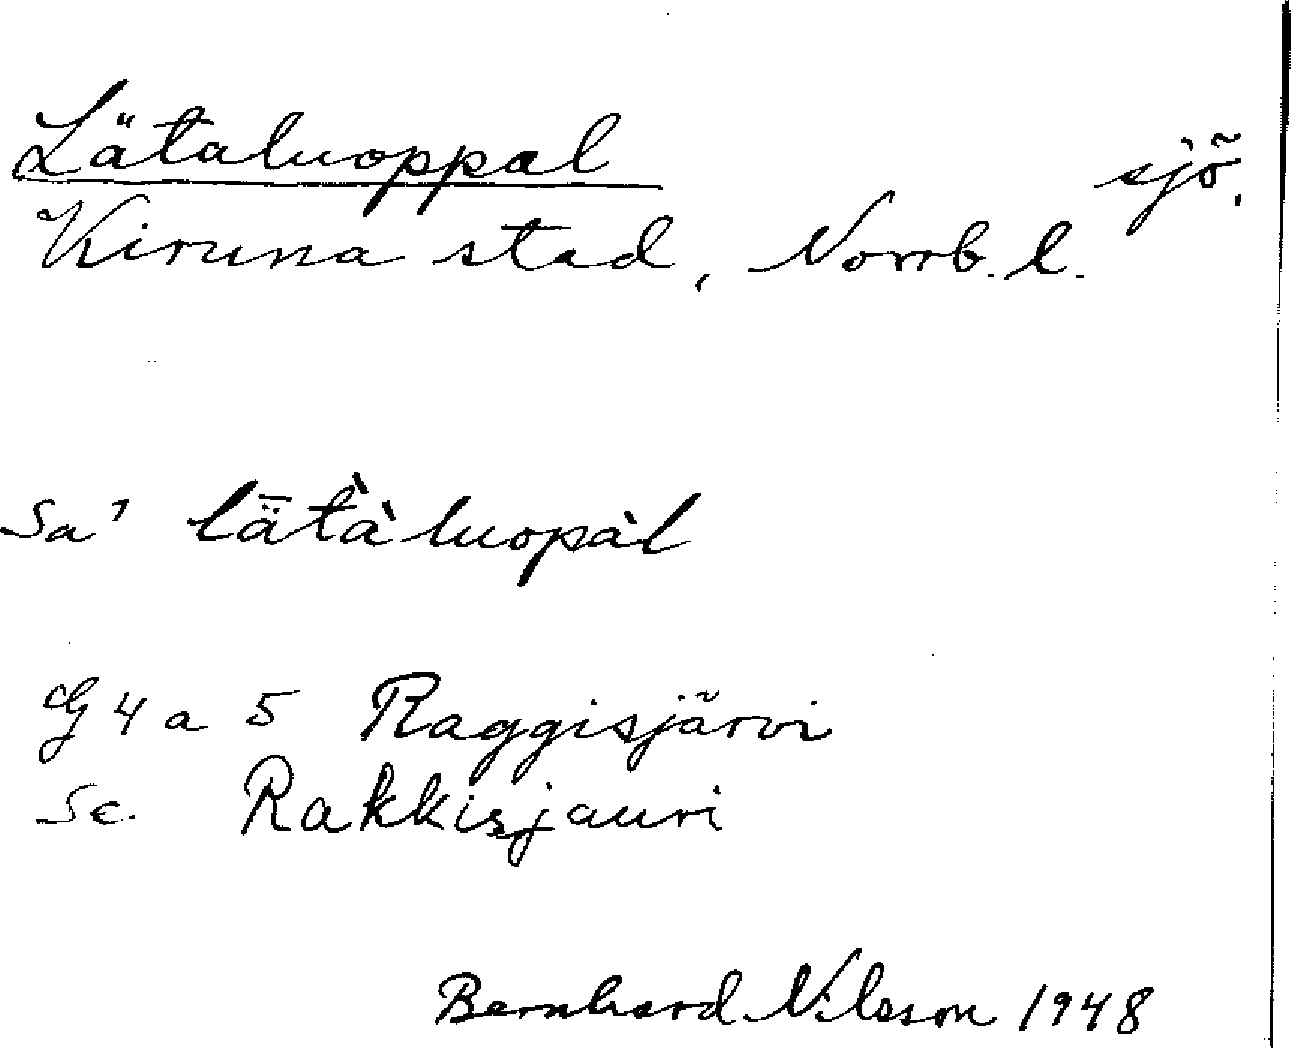 Lätaluoppal sjö.
Kiruna stad, Norrb. l.
Sa' lǟtàluopàl
G 4 a 5 Raggisjärvi
Se. Rakkisjauri
Bernhard Nilsson 1948